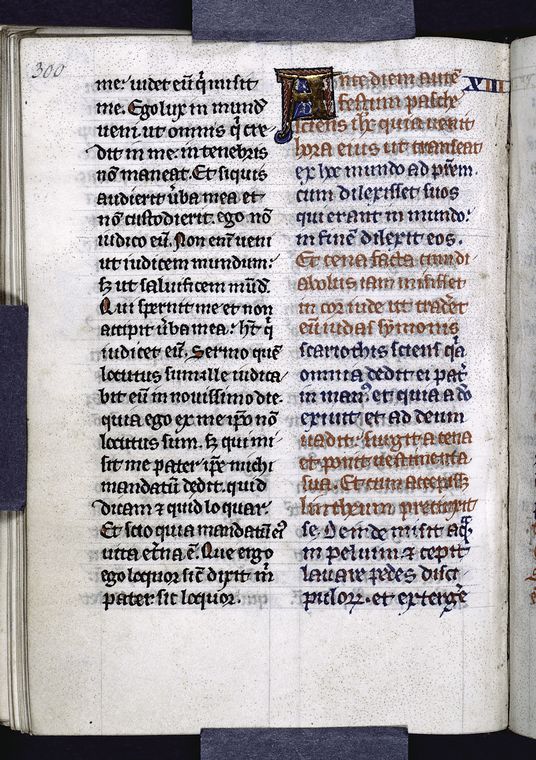 300
me: uidet eū q̄ misit
me. Ego lux in mund᷒
ueni ut omnis q̄ cre
dit in me: in tenebris
nō maneat. Et siquis
audierit ūba mea et
nō custodierit. ego nō
iudico eū. Non enī ueni
ut iudicem mundum:
sꝫ ut saluificem mūd̄.
Qui spernit me et non
accipit ūba mea: ht̄ q̄
iudicet eū. Sermo quē
locutus sum: ille iudica
bit eū in nouissimo die.
quia ego ex me ip̄o nō
locutus sum. sꝫ qui mi
sit me pater ip̄e michi
mandatū dedit. quid
dicam ⁊ quid loquar.
Et scio quia mandatū ei᷒
uita et̄na ē. Que ergo
ego loquor sic̄ dixit m̄
pater: sic loquor.
Ante diem autē
XIII
festum pasche
sciens ihc̄ quia uenit
hora eius ut transeat
ex hoc mundo ad pr̄em.
cum dilexisset suos
qui erant in mundo:
in finē dilexit eos.
Et cena facta cum di
abolus iam misisset
in cor iude ut trad̄et
eū iudas symonis
scariothis sciens q̄a
omnia dedit ei pat̄
in man᷒. et quia a d̄o
exiuit et ad deum
uadit: surgit a cena
et ponit uestimenta
sua. Et cum accepissꝫ
lintheum precinxit
se. Deinde misit aq̄.
in peluim ⁊ cepit
lauare pedes disci
pulorꝝ. et exterge̅